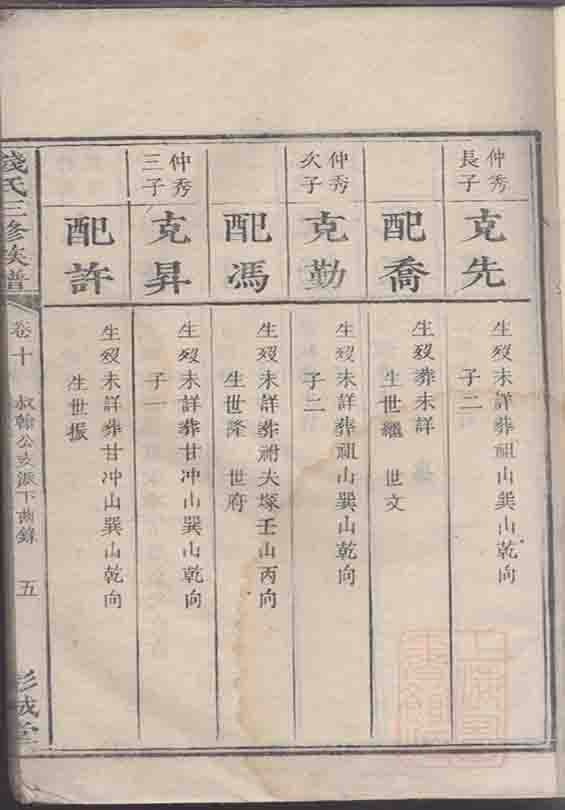 仲秀
長子
克先
生歿未詳葬祖山巽山乾向
子二
配喬
生歿葬未詳
生世繼 世文
仲秀
次子
克勤
生歿未詳葬祖山巽山乾向
子二
配馮
生歿未詳葬祔夫塚壬山丙向
生世隆 世府
仲秀
三子
克昇
生歿未詳葬甘冲山巽山乾向
子一
配許
生歿未詳葬甘冲山巽山乾向
生世振
錢氏三修族譜
卷十
叔翰公支派下齒錄
五
彭城堂